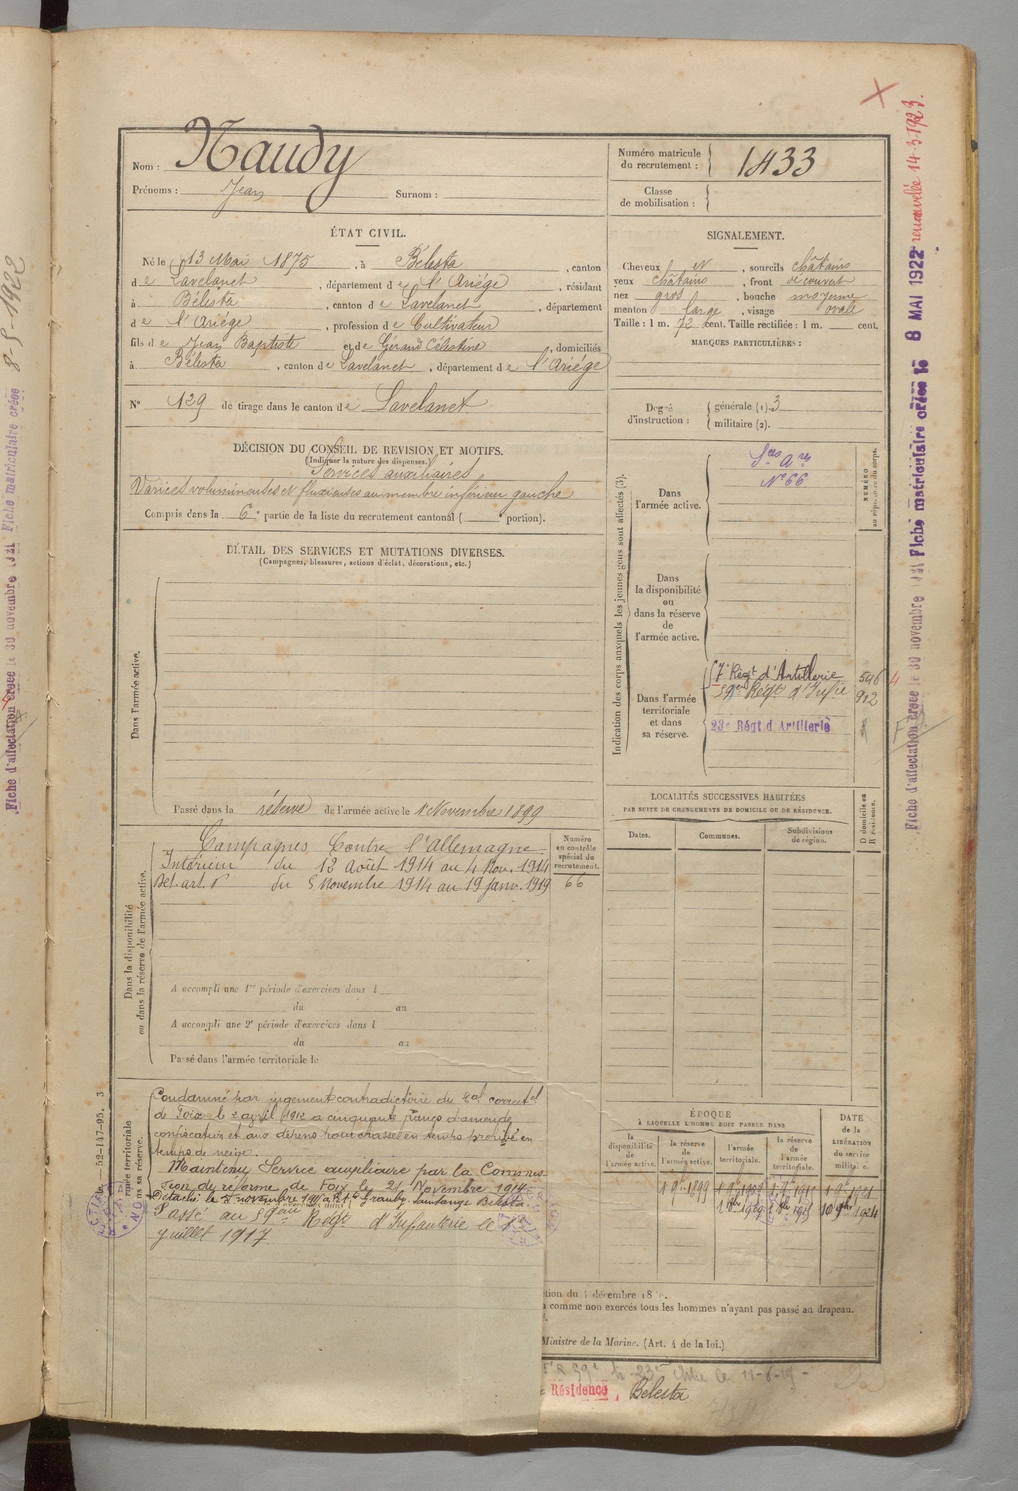 Nom : Naudy
Prénoms : Jean Surnom :
Numéro matricule
du recrutement : 1433
Classe
de mobilisation :
ÉTAT CIVIL.
Né le 13 Mai 1875, à Bélesta, canton
de Lavelanet, département de l'Ariége, résidant
à Bélesta, canton de Lavelanet, département
de l'Ariége, profession de Cultivateur
fils de Jean Baptiste et de Gérand Célestine, domiciliés
à Bélesta, canton de Lavelanet, département de l'Ariége
N° 129 de tirage dans le canton de Lavelanet
SIGNALEMENT.
Cheveux et, sourcils châtains
yeux châtains, front découvert
nez gros, bouche moyenne
menton large, visage ovale
Taille : 1 m. 72 cent. Taille rectifiée : 1 m. cent.
MARQUES PARTICULIÈRES :
Degré
d'instruction :
générale (1). 3
militaire (2).
DÉCISION DU CONSEIL DE REVISION ET MOTIFS.
(Indiquer la nature des dispenses.)
Services auxiliaires
Varices volumineuses et flexueuses au membre inférieur gauche
Compris dans la 6e partie de la liste du recrutement cantonal ( portion).
DÉTAIL DES SERVICES ET MUTATIONS DIVERSES.
(Campagnes, blessures, actions d'éclat, décorations, etc.)
Dans l'armée active.
Passé dans la réserve de l'armée active le 1 Novembre 1899
Indication des corps auxquels les jeunes gens sont affectés (3).
Dans
l'armée active.
Ses Ares
N° 66
NUMÉRO
au répertoire du corps.
Dans
la disponibilité
ou
dans la réserve
de
l'armée active.
Dans l'armée
territoriale
et dans
sa réserve.
7e Régt d'Artillerie 546
59me Régt d'Infie 912
23e Régt d'Artillerie
Dans la disponibilité
ou dans la réserve de l'armée active.
Campagnes Contre l'Allemagne
Intérieur du 12 Août 1914 au 4 Nov. 1914
Dét. art. du 5 Novembre 1914 au 19 Janv. 1919
Numéro
au contrôle
spécial du
recrutement.
66
A accompli une 1re période d'exercices dans l
du au
A accompli une 2e période d'exercices dans l
du au
Passé dans l'armée territoriale le
LOCALITÉS SUCCESSIVES HABITÉES
PAR SUITE DE CHANGEMENTS DE DOMICILE OU DE RÉSIDENCE.
Dates. Communes. Subdivisions
de région.
D domicile ou
R résidence.
Condamné par jugement contradictoire du Tal correctel
de Foix le 2 avril 1912 à cinquante francs d'amende
confiscation et aux dépens pour chasse en temps prohibé en
temps de neige.
Maintenu Service auxiliaire par la Commis
sion de réforme de Foix le 21 Novembre 1914
Détaché le 5 novembre 191
Passé au 59eme Régt d'Infanterie le 1er
Juillet 1917
52-147-95. 3
ÉPOQUE
À LAQUELLE L'HOMME DOIT PASSER DANS
la
disponibilité
de
l'armée active.
la réserve
de
l'armée active.
l'armée
territoriale.
la réserve
de
l'armée
territoriale.
DATE
de la
LIBÉRATION
du service
militaire.
comme non exercés tous les hommes n'ayant pas passé au drapeau.
Ministre de la Marine. (Art. 4 de la loi.)
Résidence Bélesta
Fiche d'affectation créée le 30 novembre 1921 Fiche matriculaire créée le 8 MAI 1922 renouvelée 14-3-1923.
Fiche d'affectation créée le 30 novembre 1921 Fiche matriculaire créée 8-5-1922